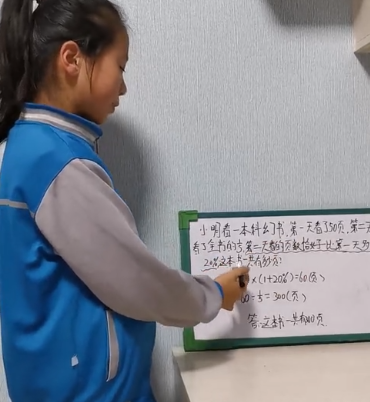 小明看一本科幻书,第一天看了50页,第二天
看了全书的,第二天看的页数恰好比第一天多
20%,这本书一共有多少页?
×(1+20%)=60(页)
60÷=300(页)
答:这本书一共有300页